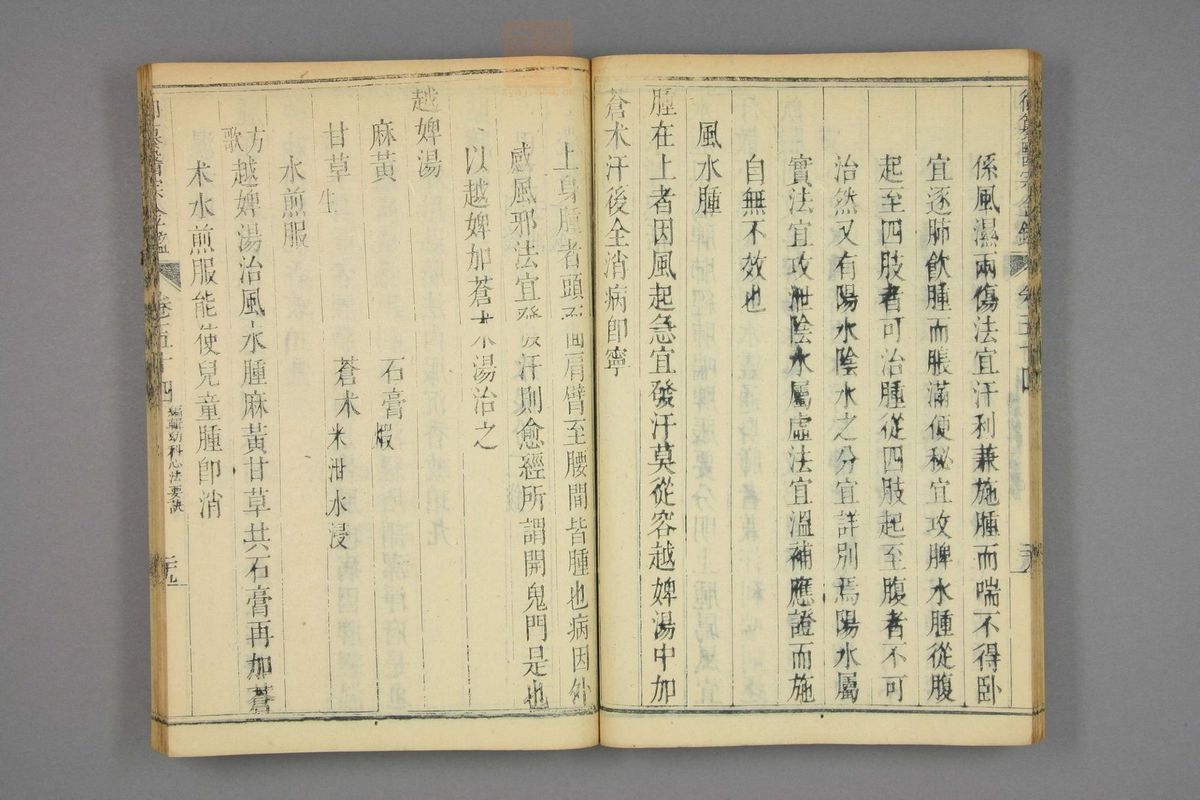 係風濕兩傷法宜汗利兼施腫而喘不得卧
宜逐肺飲腫而脹滿便秘宜攻脾水腫從腹
起至四肢者可治腫從四肢起至腹者不可
治然又有陽水陰水之分宜詳別焉陽水屬
實法宜攻泄陰水屬虛法宜溫補應證而施
自無不效也
風水腫
腫在上者因風起急宜發汗莫從容越婢湯中加
蒼术汗後全消病卽寧
上身腫者頭面肩臂至腰間皆腫也病因外
感風邪法宜發汗則愈經所謂開鬼門是也
以越婢加蒼术湯治之
越婢湯
麻黃 石膏煅
甘草生 蒼术米泔水浸
水煎服
方歌
越婢湯治風水腫麻黃甘草共石膏再加蒼
术水煎服能使兒童腫卽消
卷五十四 編輯幼科心法要訣